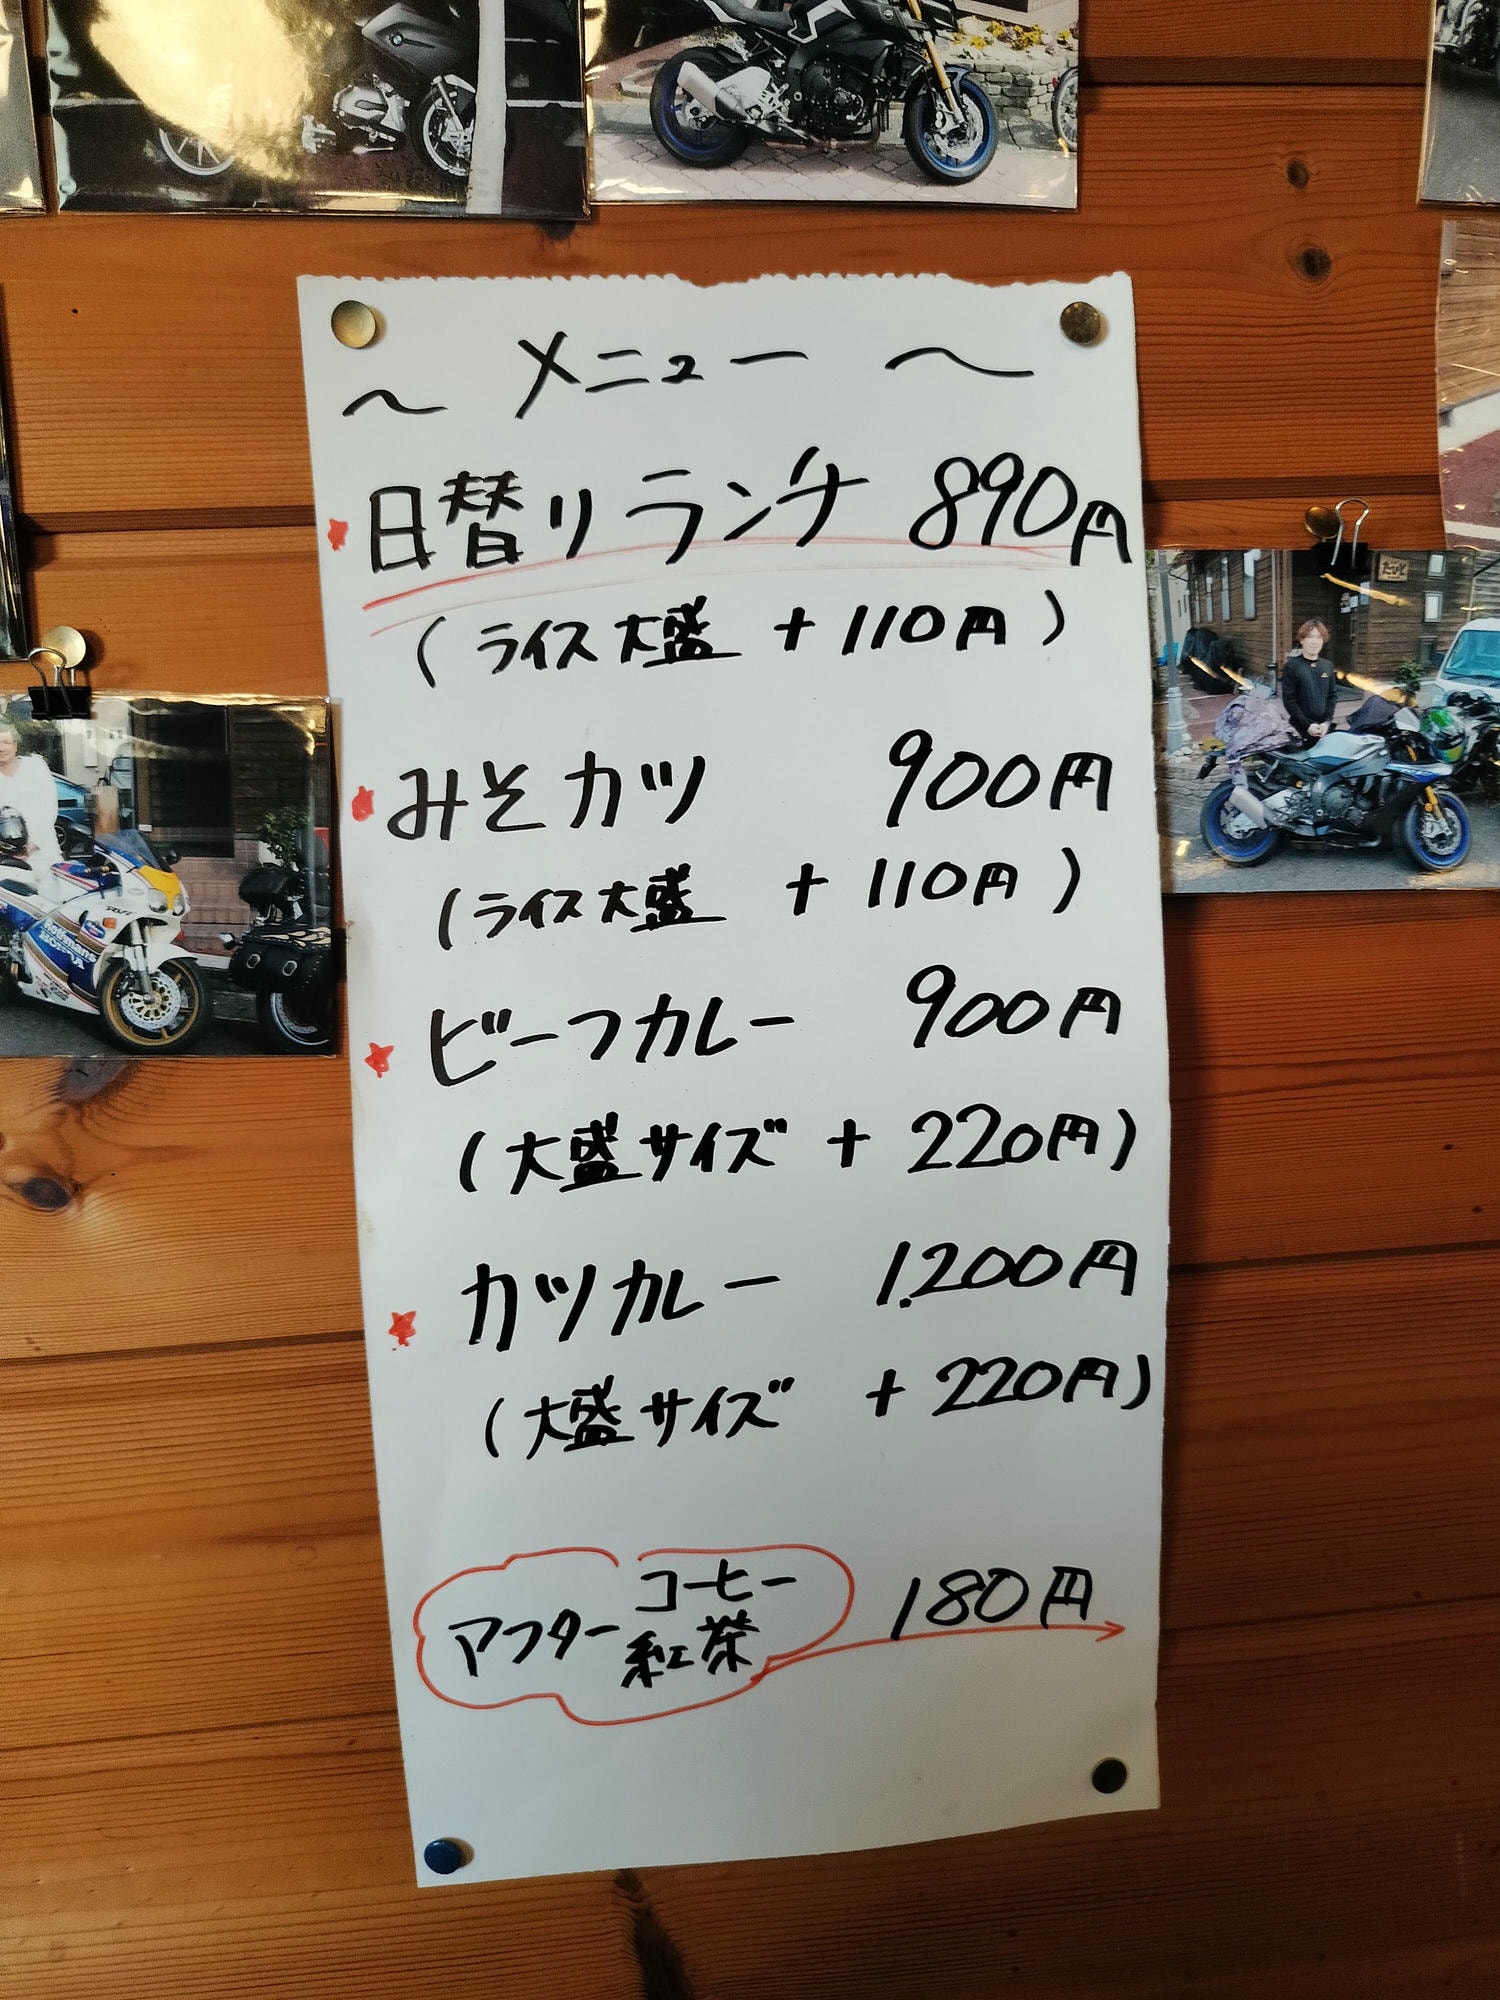 〜 メニュー 〜
日替りランチ 890円
(ライス大盛 +110円)
みそカツ 900円
(ライス大盛 +110円)
ビーフカレー 900円
(大盛サイズ +220円)
カツカレー 1.200円
(大盛サイズ +220円)
アフター コーヒー 紅茶 180円